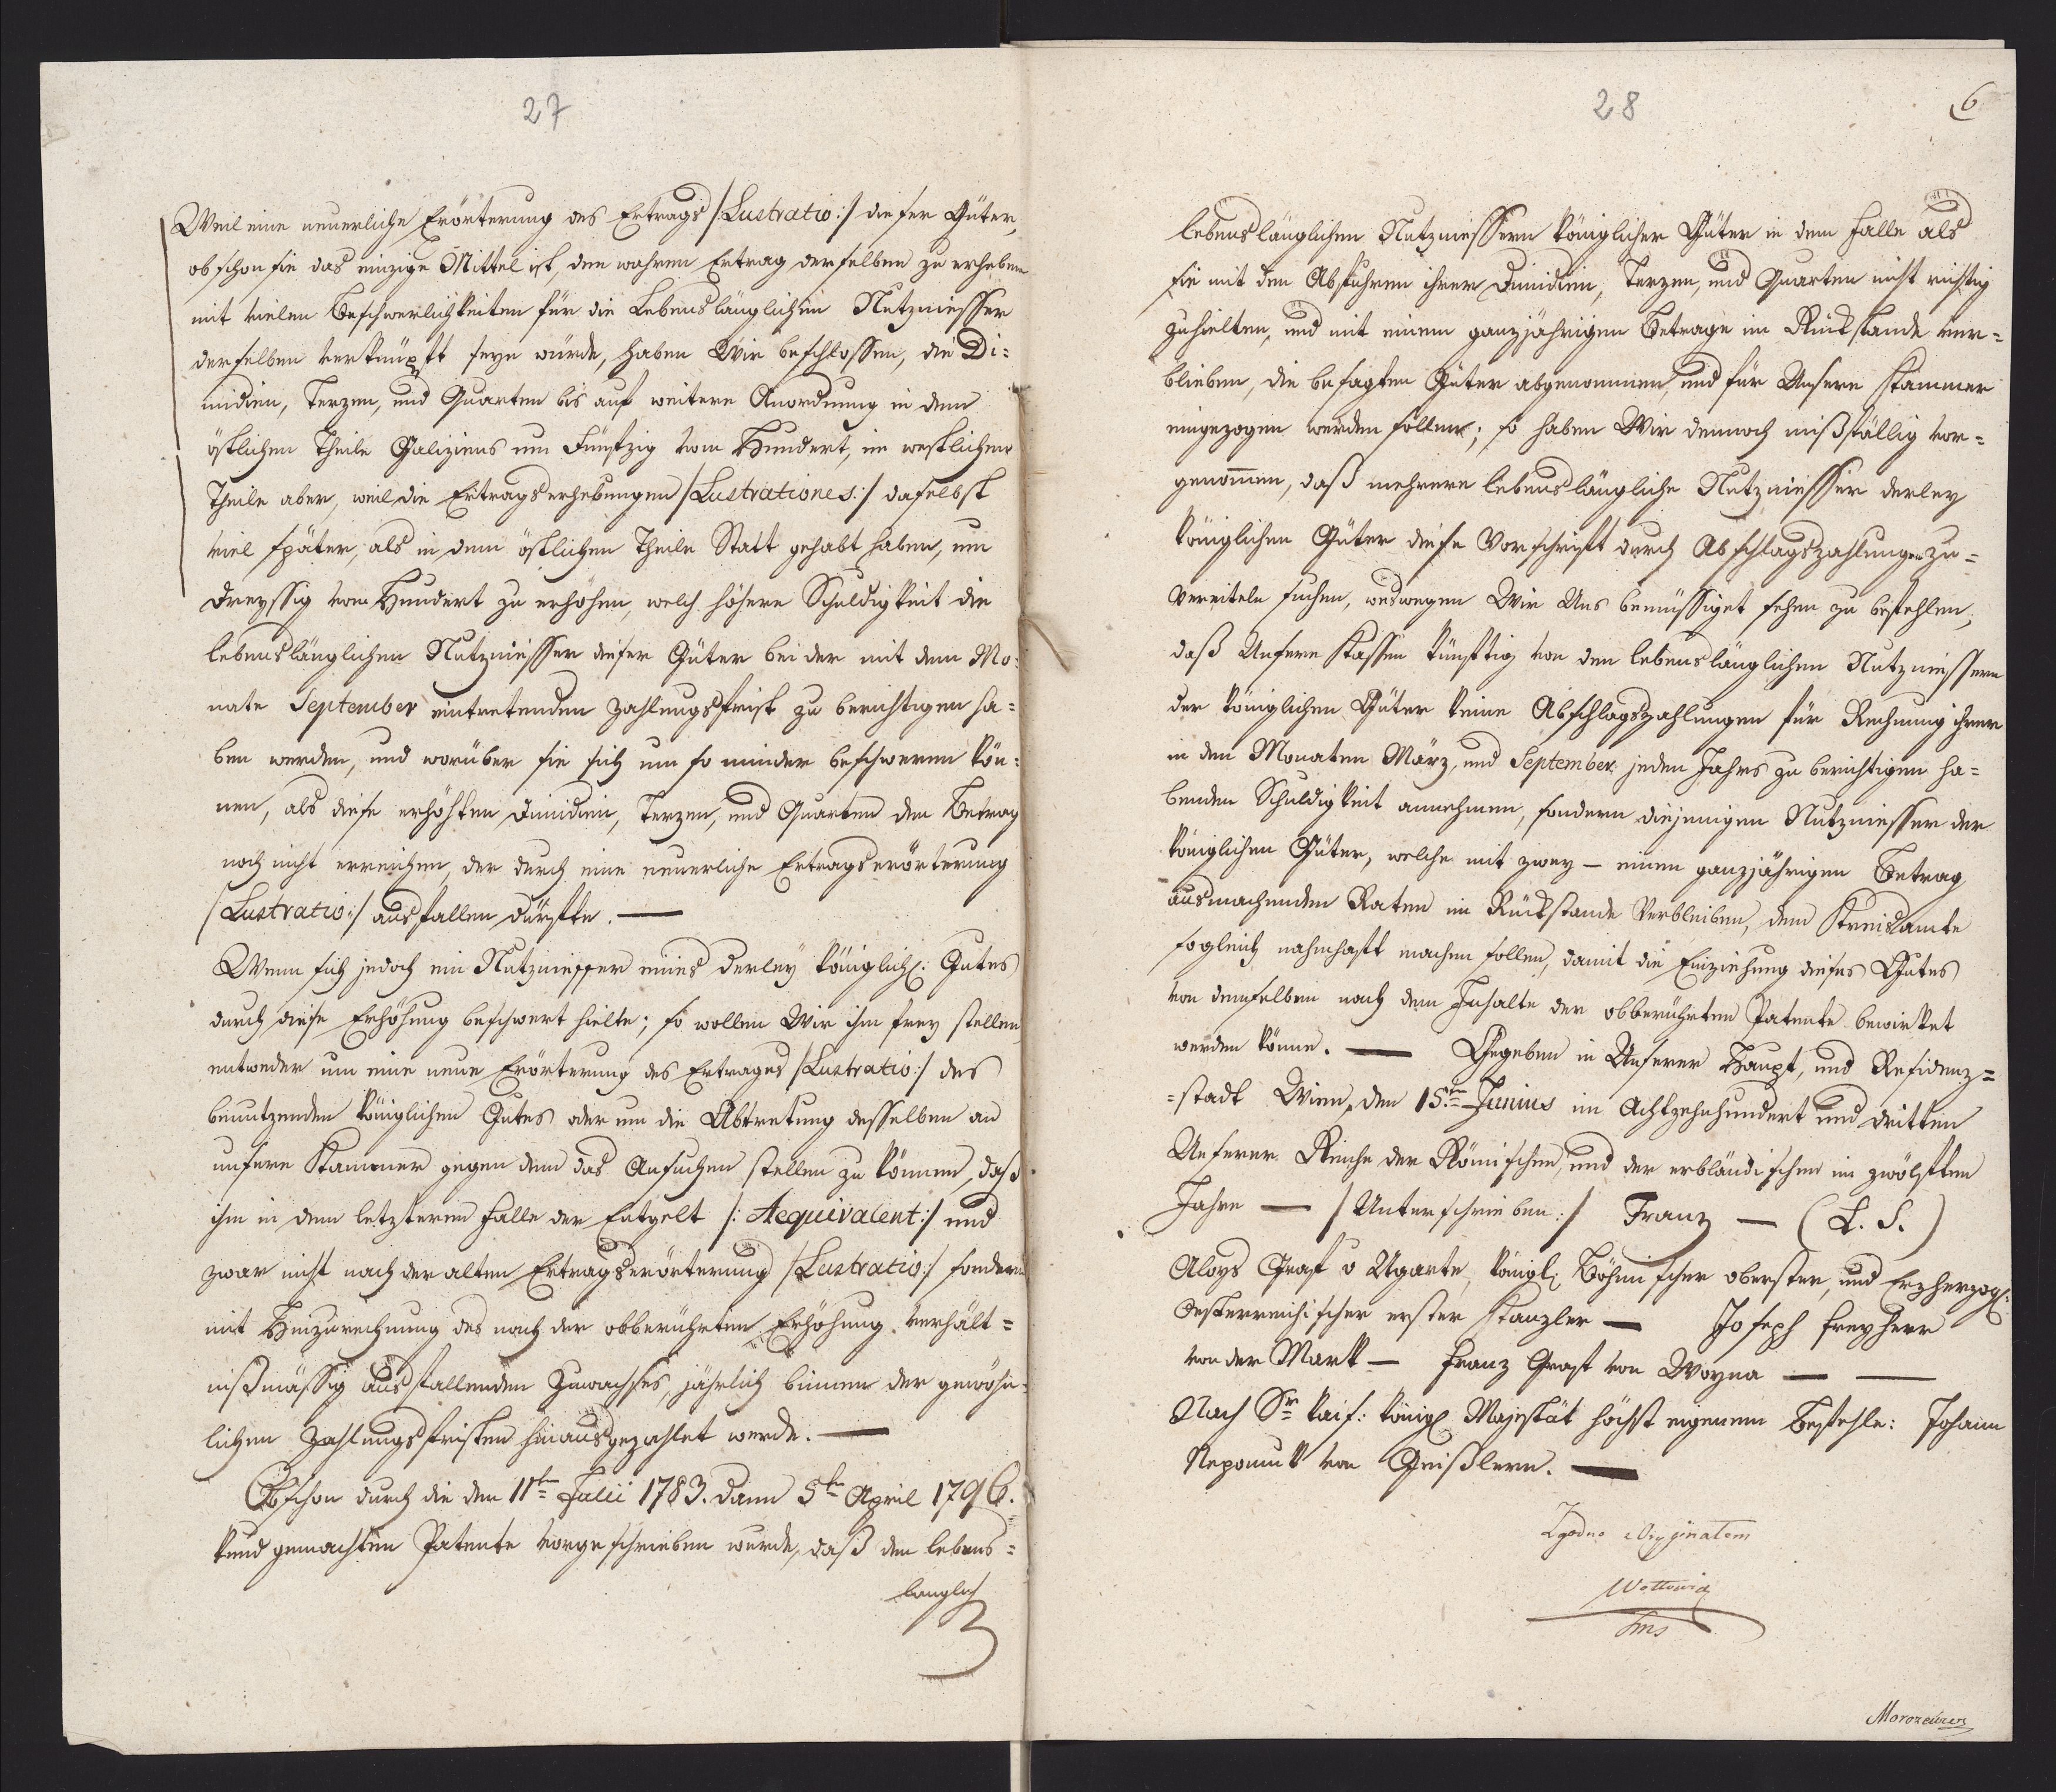 27
Weil eine neuerliche Erörterung des Ertrags /Lustratio:/ dieser Güter,
obschon sie das einzige Mittel ist, den wahren Ertrag derselben zu erheben
mit vielen Beschwerlichkeiten für die Lebenslänglichen Nutzniesser
derselben verknüpft seyn würde, haben Wir beschlossen, die Di=
midien, Terzen, und Quarten bis auf weitere Anordnung in dem
östlichen Theile Galiziens um Fünfzig vom Hundert, im westlichen
Theile aber, weil die Ertragserhebungen /Lustrationes:/ daselbst
viel später, als in dem östlichen Theile Statt gehabt haben, um
dreyssig vom Hundert zu erhöhen, welch höhere Schuldigkeit die
lebenslänglichen Nutzniesser dieser Güter bei der mit dem Mo=
nate September eintretenden Zahlungsfrist zu berichtigen ha=
ben werden, und worüber sie sich um so minder beschweren kön=
nen, als diese erhöhten Dimidien, Terzen, und Quarten den Betrag
noch nicht erreichen, der durch eine neuerliche Ertragserörterung
/Lustratio:/ ausfallen dürfte. —
Wenn sich jedoch ein Nutzniesser eines derley königlich: Gutes
durch diese Erhöhung beschwert hielte; so wollen Wir ihm frey stellen
entweder um eine neue Erörterung des Ertrages /Lustratio:/ des
benutzenden königlichen Gutes oder um die Abtretung desselben an
unsere Kammer gegen dem das Ansuchen stellen zu können, dass
ihm in dem letzteren Falle der Entgelt /: Aequivalent:/ und
zwar nicht nach der alten Ertragserörterung /Lustratio:/ sondern
mit Hinzurechnung des nach der obberührten Erhöhung verhält=
nißmässig ausfallenden Zuwachses, jährlich binnen der gewöhn=
lichen Zahlungsfristen hinausgezahlet werde. —
Obschon durch die den 11ten Julii 1783. dann 5ten April 1796.
kund gemachten Patente vorgeschrieben wurde, daß den lebens=
länglich
28
6
lebenslänglichen Nutzniessern königlicher Güter in dem Falle als
sie mit den Abfuhren ihrer Dimidien, Terzen, und Quarten nicht richtig
zuhielten, und mit einem ganzjährigen Betrage im Rückstande ver=
blieben, die besagten Güter abgenommen, und für Unsere Kammer
eingezogen werden sollen; so haben Wir dennoch mißfällig vor=
genom̅en, daß mehrere lebenslängliche Nutzniesser derley
königlichen Güter diese Vorschrift durch Abschlagszahlungen zu=
vereiteln suchen, weswegen Wir Uns bemüssiget sehen zu befehlen,
daß Unsere Kassen künftig von den lebenslänglichen Nutzniessern
der königlichen Güter keine Abschlagszahlungen für Rechnung ihrer
in den Monaten März, und September jeden Jahrs zu berichtigen ha=
benden Schuldigkeit annehmen, sondern diejenigen Nutzniesser der
königlichen Güter, welche mit zwey — einen ganzjährigen Betrag
ausmachenden Raten im Rückstande verbleiben, dem Kreisamte
sogleich nahmhaft machen sollen, damit die Einziehung dieses Gutes
von demselben nach dem Inhalte der obberührten Patente bewirket
werden könne. — Gegeben in Unserer Haupt, und Residenz=
=stadt Wien, den 15ten Junius im Achtzehnhundert und dritten
Unserer Reiche der Römischen, und der erbländischen im zwölften
Jahre — /Unterschrieben:/ Franz — (L. S.)
Aloys Graf v Ugarte, königl: Böhmischer oberster, und Erzherzogl:
Oesterreichischer erster Kanzler — Joseph Freyherr
von der Mark — Franz Graf von Woyna — —
Nach Sr kais: königl Majestät höchst eigenem Befehle: Johann
Nepomuk von Geißlern. —
Zgodno z Oryginałem